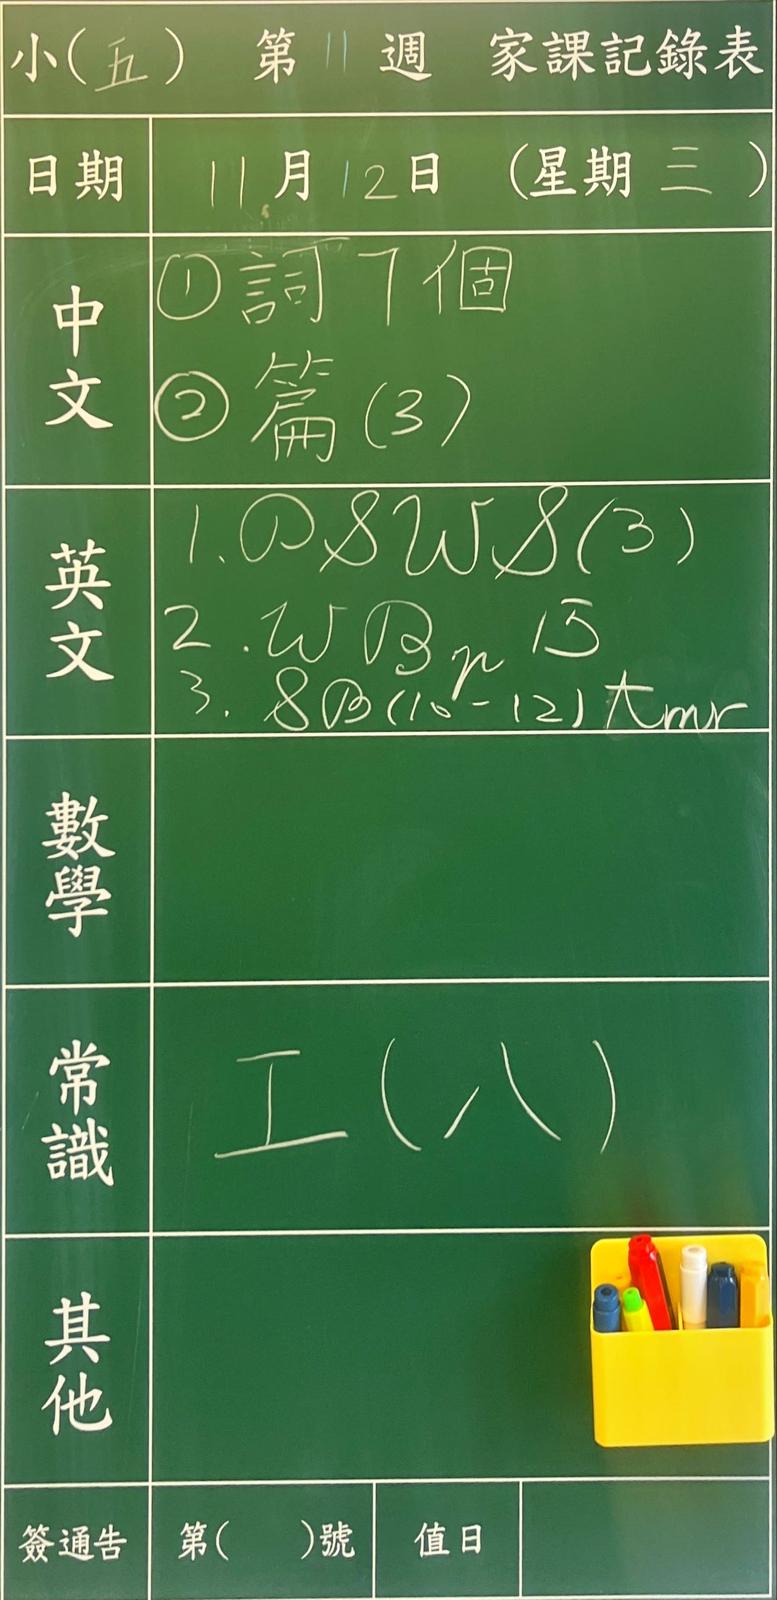 小(五) 第11週 家課記錄表
日期 11月12日 (星期三)
中文
①詞7個
②篇(3)
英文
1. DSWS(3)
2. WB p 15
3. SB(10-12) tmr
數學
常識
工(八)
其他
簽通告 第( )號 值日